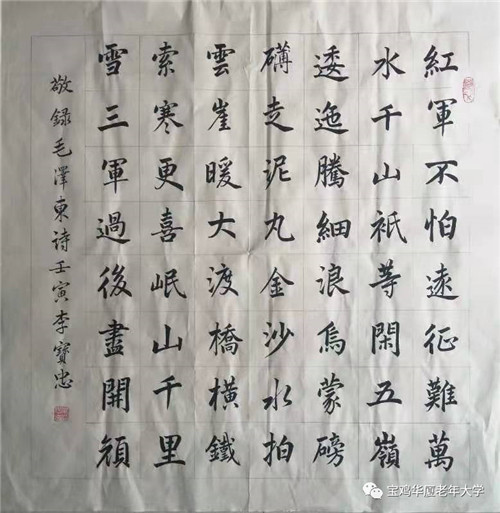 紅軍不怕遠征難萬
水千山祇等閑五嶺
逶迤騰細浪烏蒙磅
礴走泥丸金沙水拍
雲崖暖大渡橋橫鐵
索寒更喜岷山千里
雪三軍過後盡開顏
敬録毛澤東詩壬寅李寶忠
宝鸡华厦老年大学